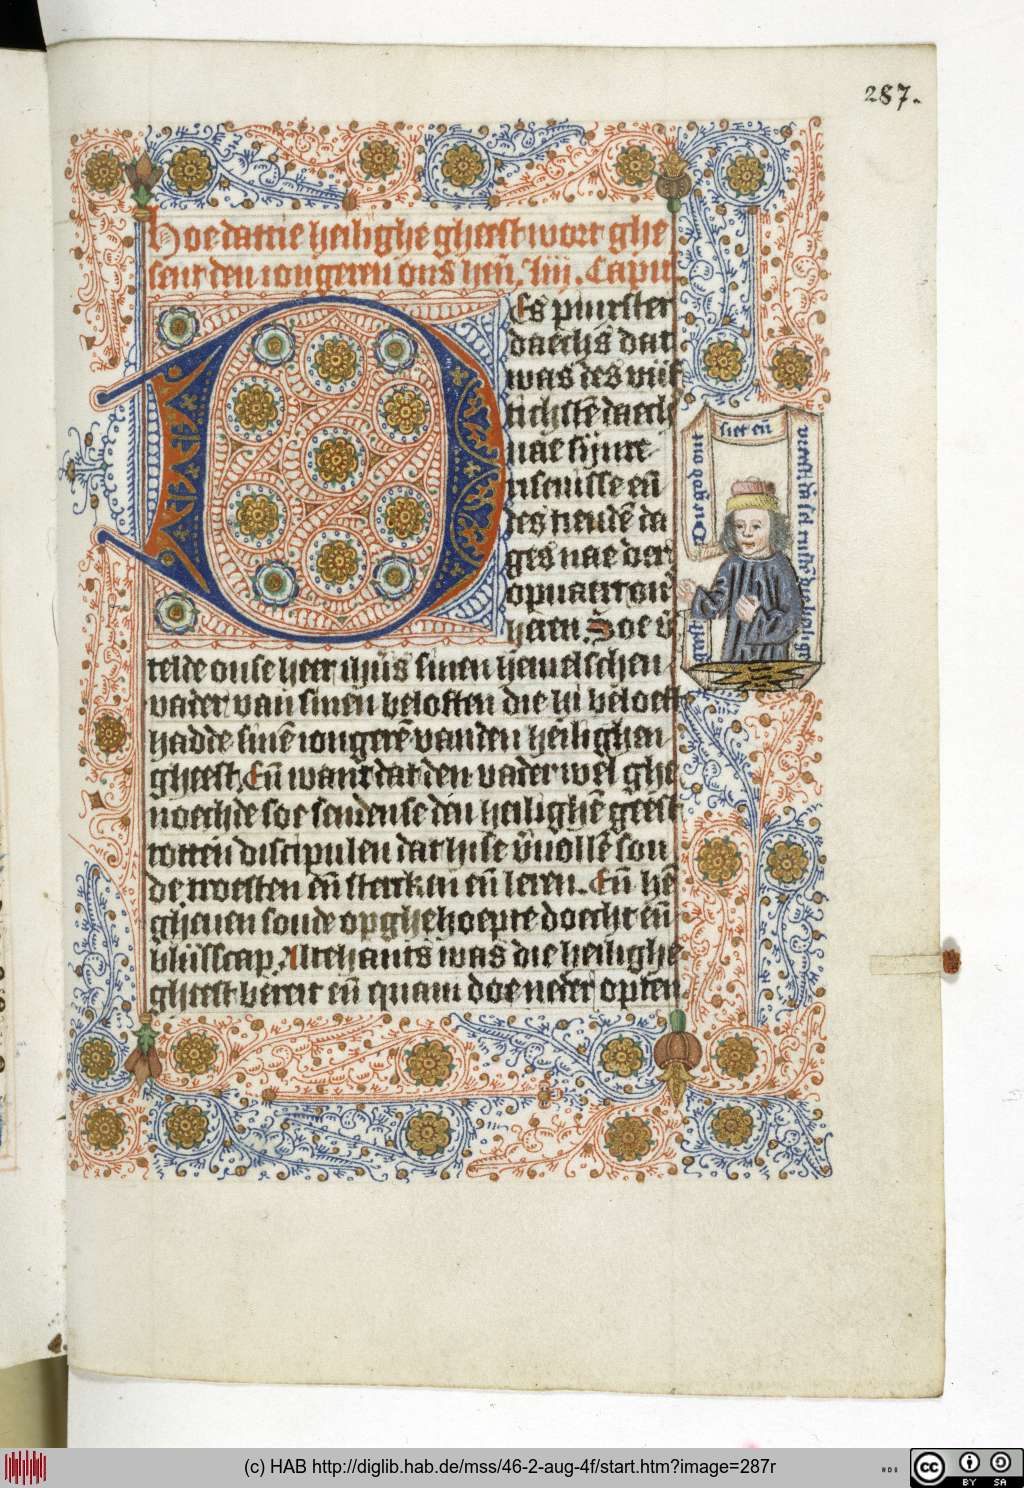 287.
Hoe dattie heilighe gheest wort ghe
sent den iongeren ons herē. liij. Capit
DEs pinxster
daechs dat
was des viif
tichstē daech
nae sijnre
risenisse eñ
des tiendē da
ges nae der
opuaert ons
heren. Soe v̄
telde onse heer ihūs sinen hemelschen
vader van sinen beloften die hi beloeft
hadde sinē iongerē vanden heilighen
gheest. Eñ want dat den vader wel ghe
noechde soe sendense den heilighē geest
totten discipulen dat hi se v̄uollē sou
de troesten eñ stercken eñ leren. Eñ hē
gheuen soude op gheboepte doecht eñ
bliisscap. Altehants was die heilighe
gheest bereit eñ quam doe neder op ten
Die god ont
siet eñ
heilige
geest
(c) HAB http://diglib.hab.de/mss/46-2-aug-4f/start.htm?image=287r
cc BY SA